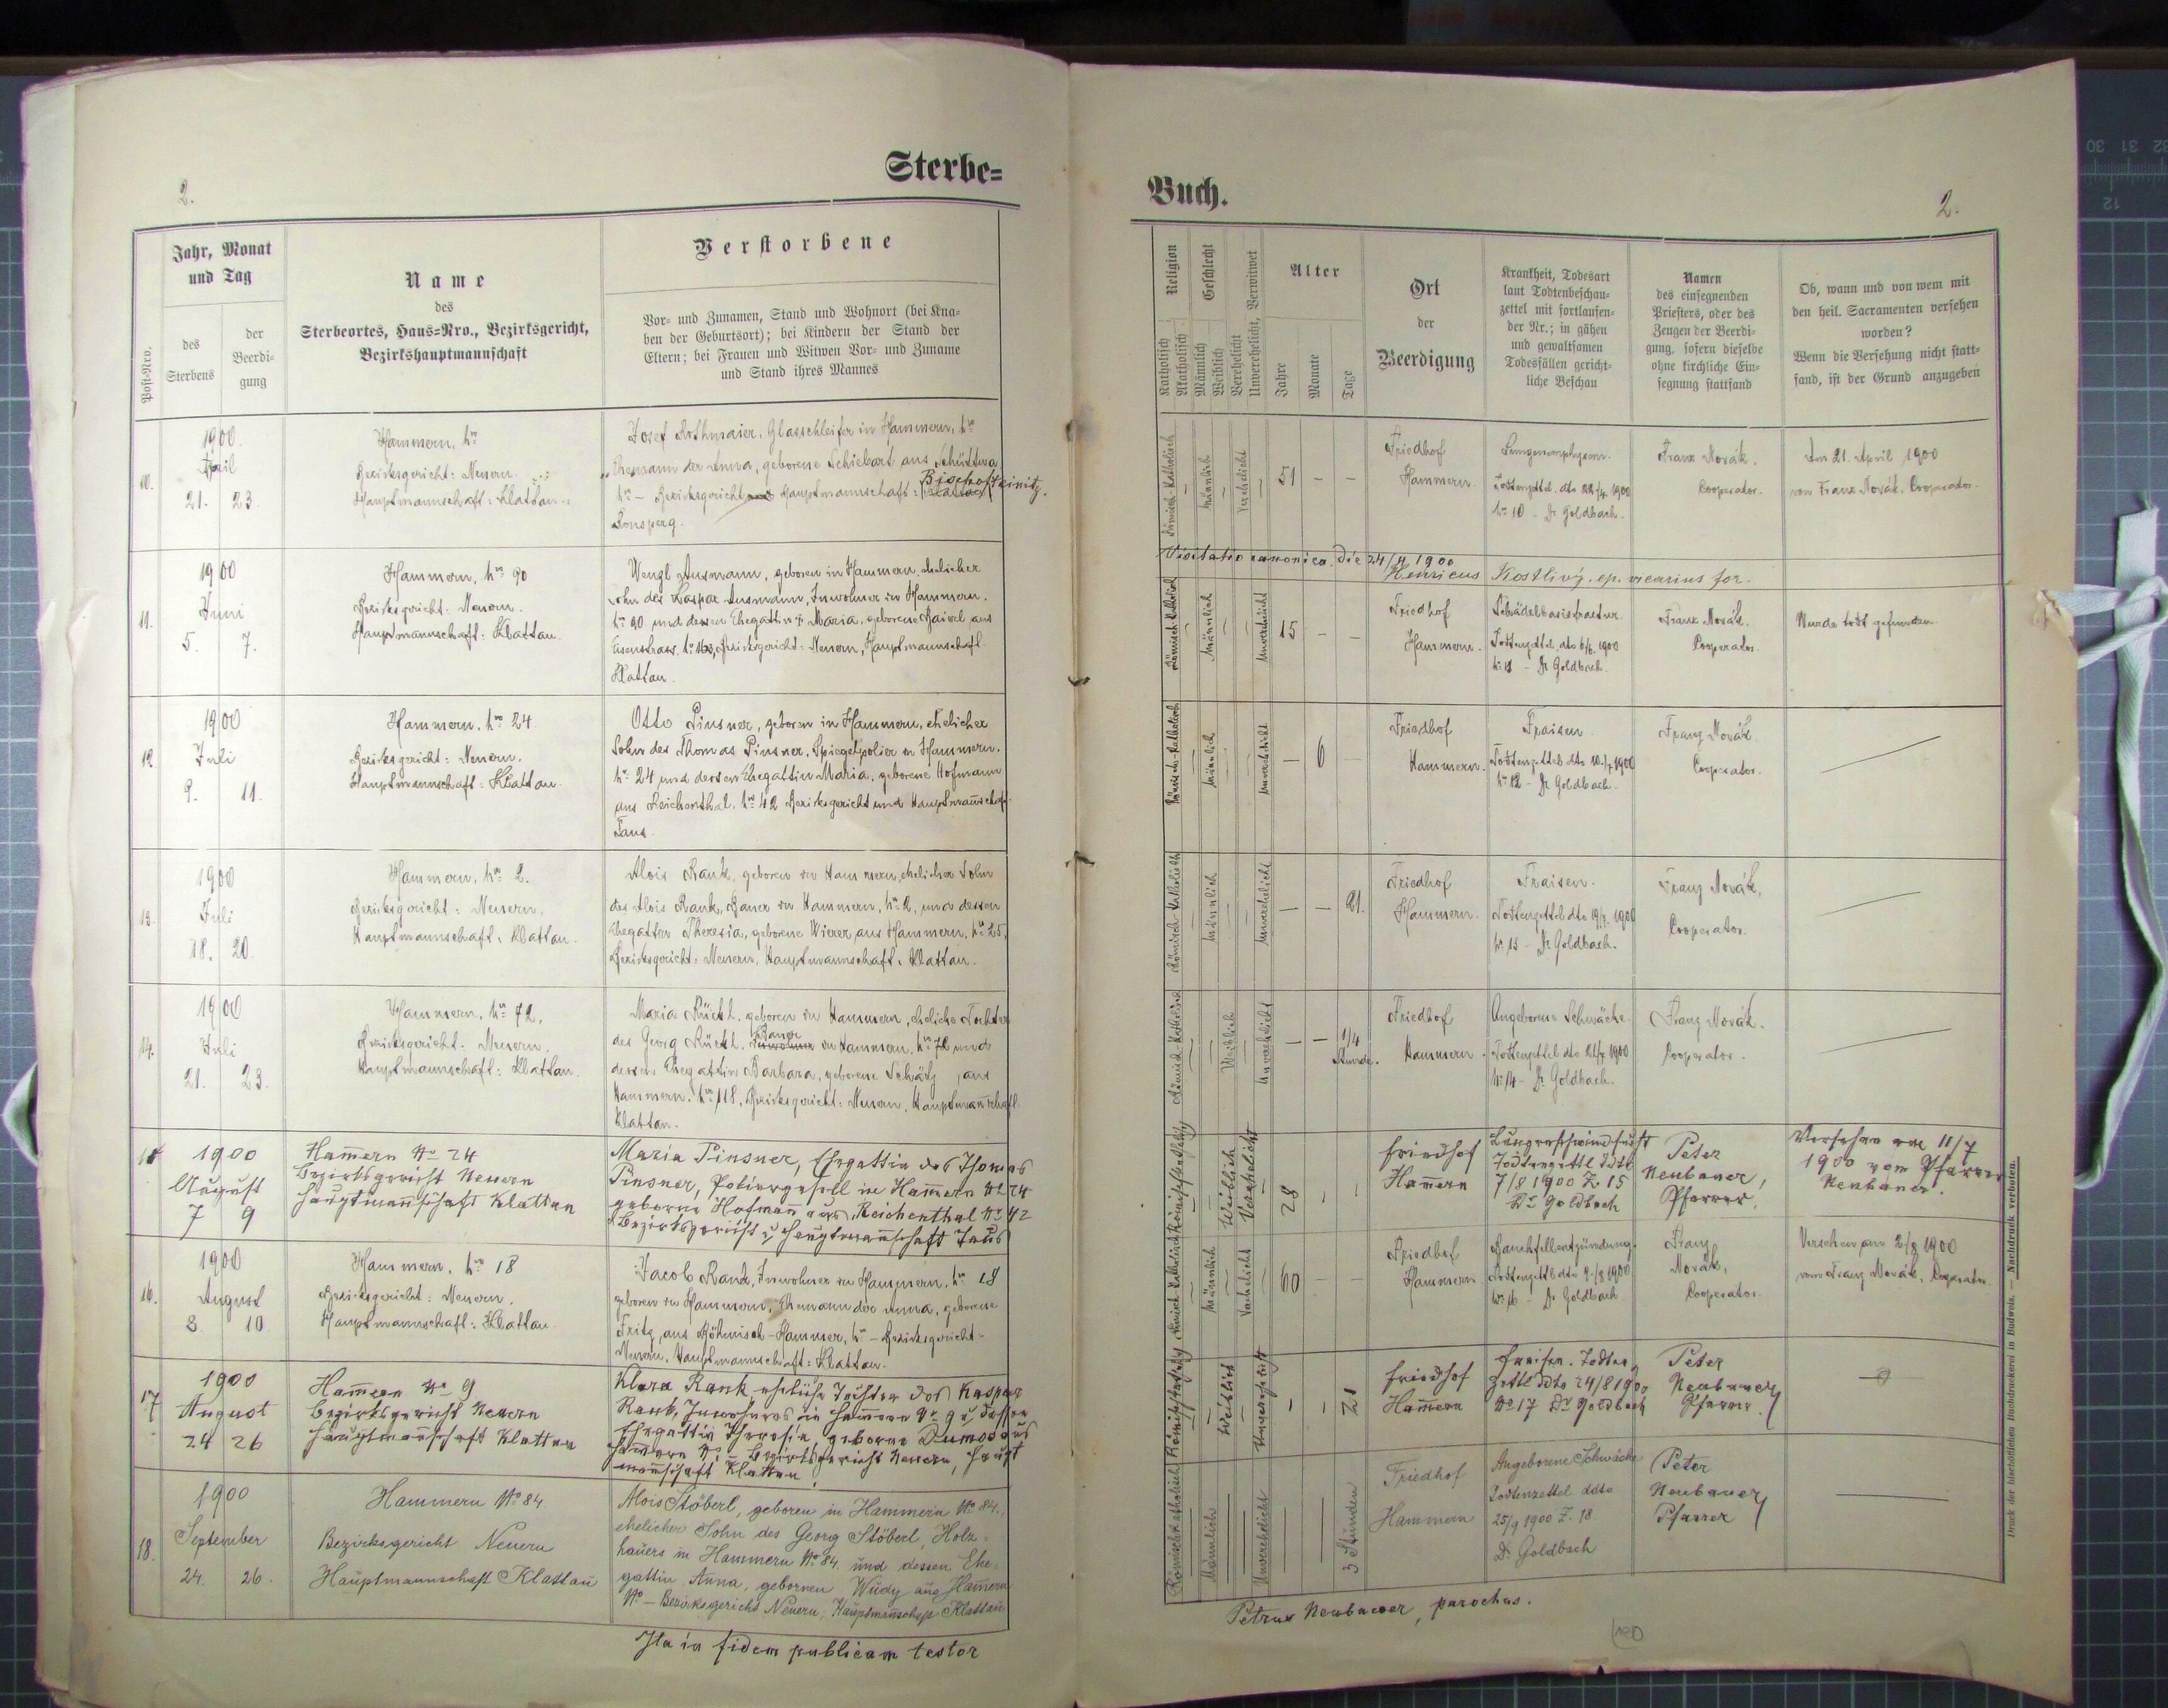 2.
Sterbe=
Jahr, Monat
und Tag
Post-Nro.
des
Sterbens
der
Beerdi-
gung
Name
des
Sterbeortes, Haus=Nro., Bezirksgericht,
Bezirkshauptmannschaft
Verstorbene
Vor- und Zunamen, Stand und Wohnort (bei Kna-
ben der Geburtsort); bei Kindern der Stand der
Eltern; bei Frauen und Witwen Vor- und Zuname
und Stand ihres Mannes
10.
1900.
April
21. 23.
Hammern, No
Bezirksgericht: Neuern.
Hauptmannschaft: Klattau.
Josef Rothmaier, Glasschleifer in Hammern, No
Ehemann der Anna, geborene Schiebart aus Schüttwa
Bischofteinitz.
No - Bezirksgericht Hauptmannschaft:
Ronsperg.
11.
1900
Juni
5. 7.
Hammern, No 90
Bezirksgericht: Neuern.
Hauptmannschaft: Klattau.
Wenzl Ausmann, geboren in Hammern, ehelicher
Sohn des Kaspar Ausmann, Inwohner in Hammern.
No 90 und dessen Ehegattin Maria, geborene aus
Eisenstrass. No Bezirksgericht: Neuern, Hauptmannschaft
Klattau.
12.
1900
Juli
9. 11.
Hammern, No 24
Bezirksgericht: Neuern.
Hauptmannschaft: Klattau.
Otto Pinsner, geboren in Hammern, ehelicher
Sohn des Thomas Pinsner, Spiegelpolier in Hammern.
No 24 und dessen Ehegattin Maria, geborene Hofmann
aus Reichenthal, No 42 Bezirksgericht und Hauptmannschaft
Taus.
13.
1900
Juli
18. 20.
Hammern, No 2.
Bezirksgericht: Neuern.
Hauptmannschaft: Klattau.
Alois Rank, geboren in Hammern, ehelicher Sohn
des Alois Rank, Bauer in Hammern, No 2, und dessen
Ehegattin Theresia, geborene Wierer aus Hammern, No 25.
Bezirksgericht: Neuern, Hauptmannschaft: Klattau.
14.
1900
Juli
21. 23.
Hammern, No 72.
Bezirksgericht: Neuern.
Hauptmannschaft: Klattau.
Maria Rückl. geboren in Hammern, eheliche Tochter
des Georg Rückl. Bauer in Hammern, No 72 und
dessen Ehegattin Barbara, geborene Schätz, aus
Hammern. No 118, Bezirksgericht: Neuern, Hauptmannschaft
Klattau.
15
1900
August
7 9
Ham̄ern No 24
Bezirksgericht Neuern
Hauptman̄schaft Klattau
Maria Pinsner, Ehegattin des Thomas
Pinsner, Poliergesell in Ham̄ern No 24
geborne Hofman̄ aus Reichenthal No 42
Bezirksgericht u Hauptman̄schaft Taus
16.
1900
August
8. 10.
Hammern, No 18
Bezirksgericht: Neuern.
Hauptmannschaft: Klattau.
Jacob Rank, Inwohner in Hammern, No 18
geboren in Hammern, Ehemann der Anna, geborene
Fritz, aus Böhmisch-Hammer, No - Bezirksgericht=
Neuern, Hauptmannschaft: Klattau.
17
1900
August
24 26
Ham̄ern No 9
Bezirksgericht Neuern
Hauptman̄schaft Klattau
Klara Rank eheliche Tochter des Kaspar
Rank, Inwohners in Ham̄ern No 9 u dessen
Ehegattin Theresia geborne aus
Ham̄ern No - Bezirksgericht Neuern, Haupt
man̄schaft Klattau.
18.
1900
September
24. 26.
Hammern No 84.
Bezirksgericht Neuern
Hauptmannschaft Klattau
Alois Stöberl, geboren in Hammern No 84.,
ehelicher Sohn des Georg Stöberl, Holz=
hauers in Hammern No 84. und dessen Ehe=
gattin Anna, gebornen Wudy aus Ham̄ern
No - Bezirksgericht Neuern, Hauptman̄schaft Klattau
Ita in fidem publicam testor
Buch.
2.
Religion
Katholisch
Akatholisch
Geschlecht
Männlich
Weiblich
Verehelicht
Unverehelicht, Verwitwet
Alter
Jahre
Monate
Tage
Ort
der
Beerdigung
Krankheit, Todesart
laut Todtenbeschau-
zettel mit fortlaufen-
der Nr.; in gähen
und gewaltsamen
Todesfällen gericht-
liche Beschau
Namen
des einsegnenden
Priesters, oder des
Zeugen der Beerdi-
gung, sofern dieselbe
ohne kirchliche Ein-
segnung stattfand
Ob, wann und von wem mit
den heil. Sacramenten versehen
worden?
Wenn die Versehung nicht statt-
fand, ist der Grund anzugeben
Römisch-Katholisch
männlich
Verehelicht
51 - -
Friedhof
Hammern.
Lungenemphysem.
Todtenzettel dto 22/4. 1900
No 10 - Dr Goldbach.
Franz Novák.
Cooperator.
Am 21. April 1900
von Franz Novák, Cooperator.
Visitatio canonica die 24/4 1900
Henricus Kostlivý, ep. vicarius for.
Römisch-Katholisch
Männlich
Unverehelicht
15 - -
Friedhof
Hammern.
Schädelbasisfractur.
Todtenzettel dto 6/6. 1900
No 11 - Dr Goldbach.
Franz Novák.
Cooperator.
Wurde todt gefunden.
Römisch-Katholisch
Männlich
Unverehelicht
- 6 -
Friedhof
Hammern.
Fraisen
Todtenzettel dto 10./7. 1900
No 12 - Dr Goldbach.
Franz Novák.
Cooperator.
Römisch-Katholisch
Männlich
Unverehelicht
- - 21.
Friedhof
Hammern.
Fraisen.
Todtenzettel dto 19/7. 1900
No 13 - Dr Goldbach.
Franz Novák,
Cooperator.
Römisch-Katholisch
Weiblich
Unverehelicht
- - 1/4
Stunde.
Friedhof
Hammern.
Angeborene Schwäche.
Todtenzettel dto 21/7. 1900
No 14 - Dr Goldbach.
Franz Novák.
Cooperator.
Weiblich
Verehelicht
28
Friedhof
Ham̄ern
Lungenschwindsucht
Todtenzettl ddto
7/8 1900 Z. 15
Dr Goldbach
Peter
Neubauer,
Pfarrer.
Versehen am 11/7
1900 vom Pfarrer
Neubauer.
Römisch-Katholisch
Männlich
Verehelicht
60 - -
Friedhof
Hammern
Bauchfellentzündung.
Todtenzettl dto 9./8 1900
No 16 - Dr Goldbach
Franz
Novák,
Cooperator
Versehen am 2/8 1900
vom Franz Novák, Cooperator.
Weiblich
- - 21
Friedhof
Ham̄ern
Fraisen. Todten
Zettl ddto 24/8 1900
No 17 Dr Goldbach
Peter
Neubauer
Pfarrer
Römischkatholisch
Männlich
Unverehelicht
3 Stunden
Friedhof
Hammern
Angeborene Schwäche
Todtenzettel ddto
25/9 1900 Z. 18
Dr. Goldbach
Peter
Neubauer
Pfarrer
Petrus Neubauer, parochus.
Druck der bischöflichen Buchdruckerei in Budweis. — Nachdruck verboten.